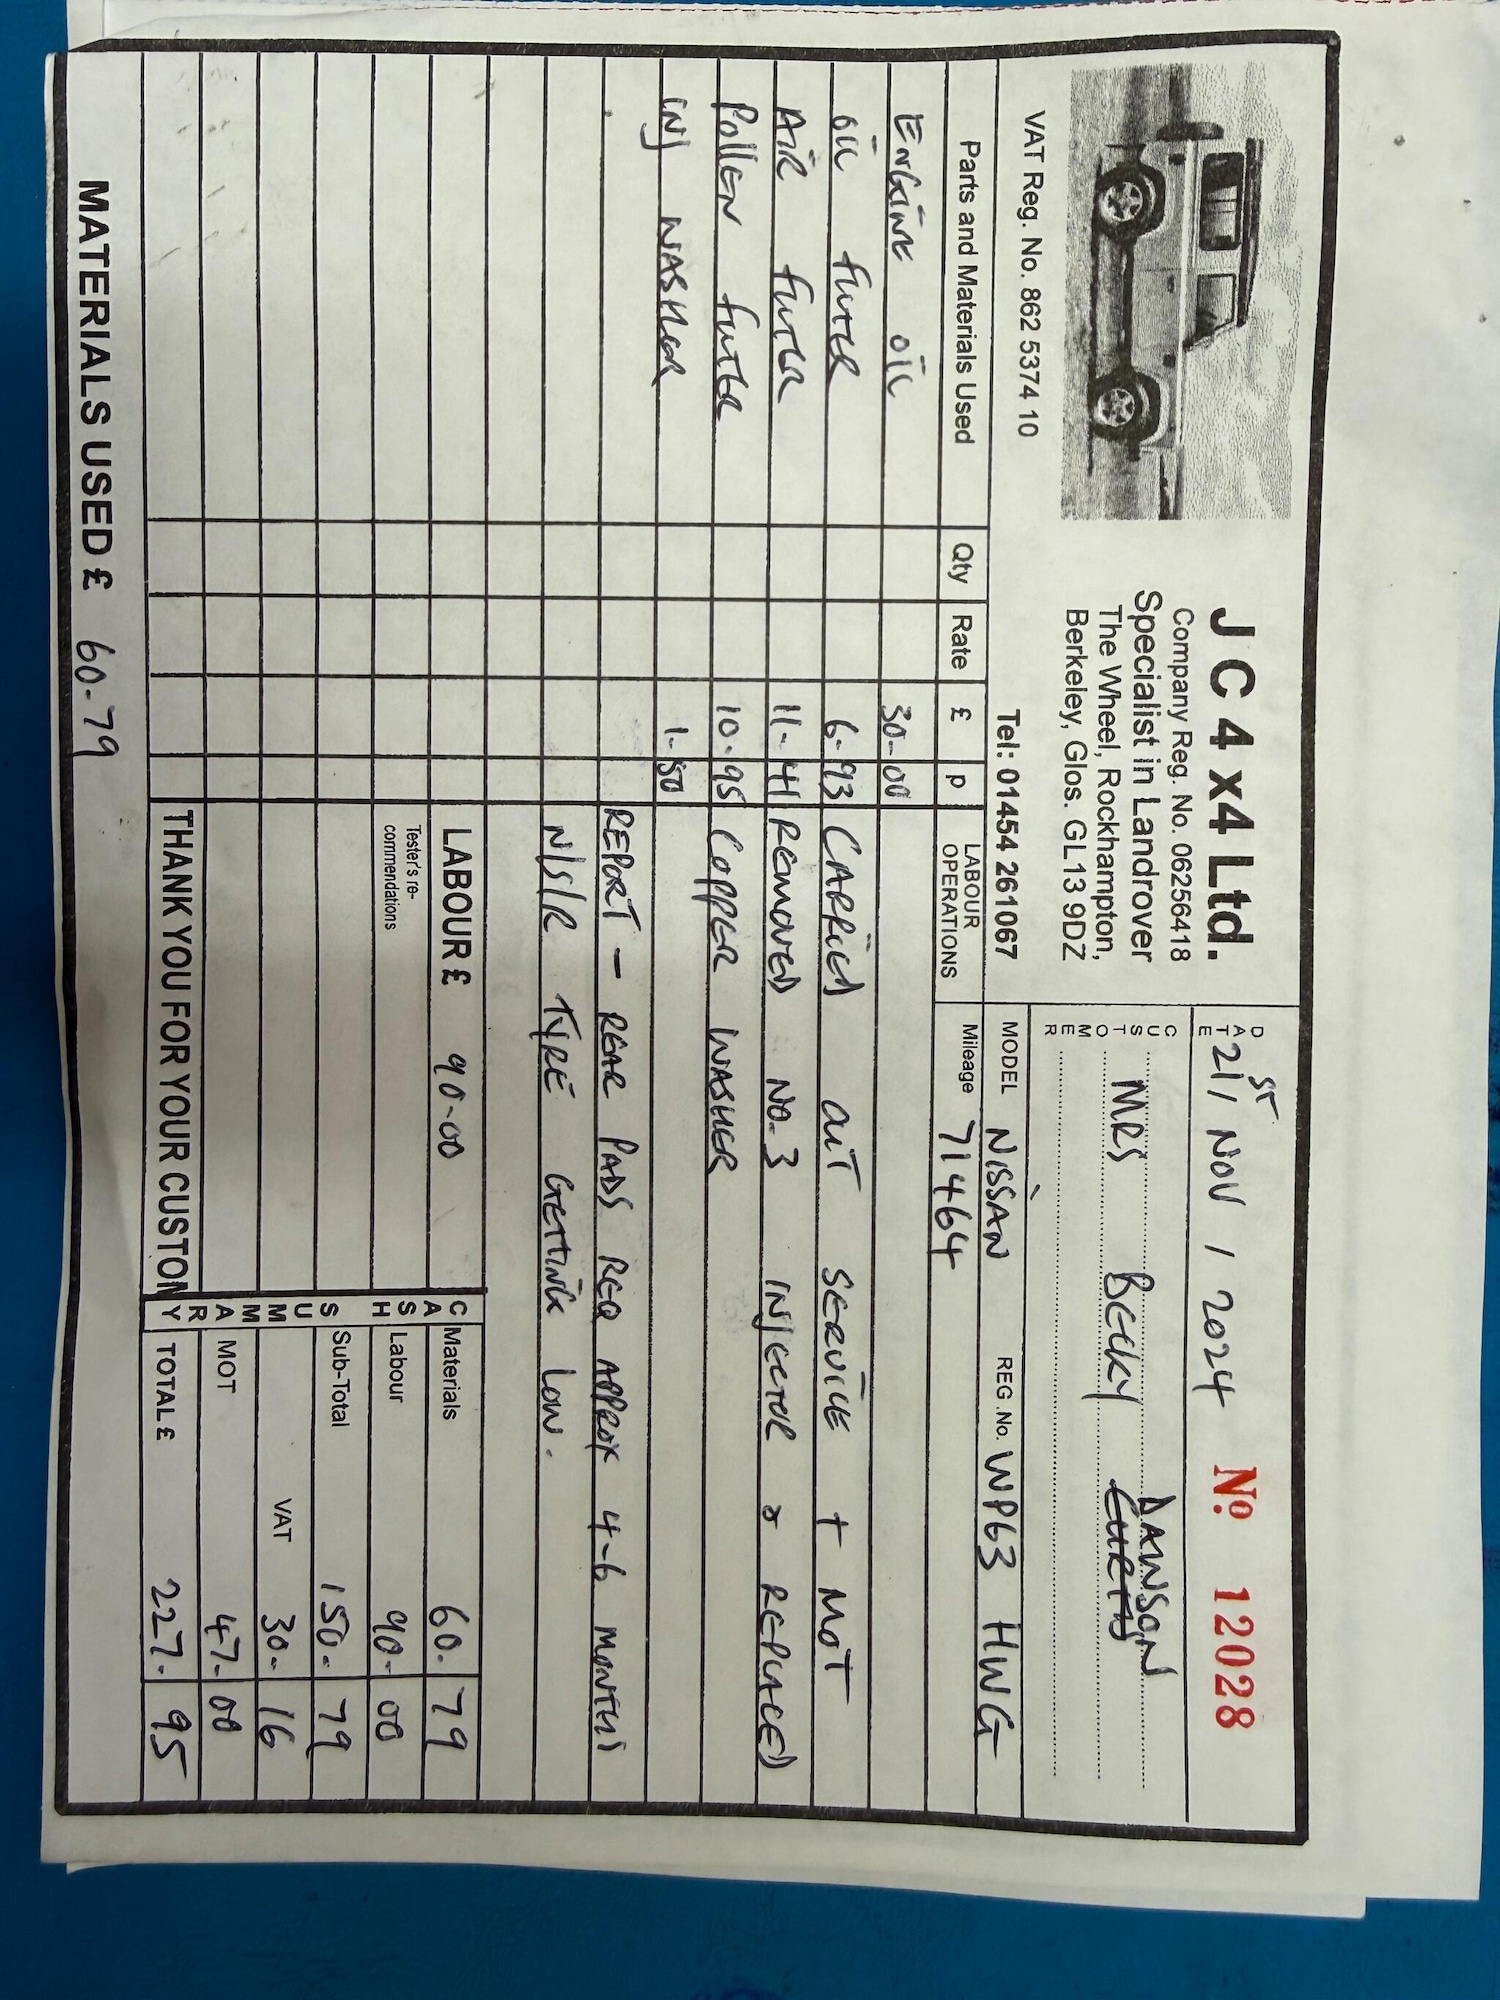 J C 4 x4 Ltd.
Company Reg. No. 06256418
Specialist in Landrover
The Wheel, Rockhampton,
Berkeley, Glos. GL13 9DZ
VAT Reg. No. 862 5374 10
Tel: 01454 261067
DATE 21ST / NOV / 2024
No. 12028
CUSTOMER MRS BECKY CURTIS DAWSON
MODEL NISSAN REG. No. WP63 HWG
Mileage 71464
Parts and Materials Used Qty Rate £ p LABOUR OPERATIONS
ENGINE OIL 30-00
OIL FILTER 6-93 CARRIED OUT SERVICE + MOT
AIR FILTER 11-41 REMOVED NO-3 INJECTOR & REPLACED
POLLEN FILTER 10-95 COPPER WASHER
INJ WASHER 1-50
REPORT - REAR PADS REQ APPROX 4-6 MONTHS
N/S/R TYRE GETTING LOW.
LABOUR £ 90-00
Tester's re-
commendations
THANK YOU FOR YOUR CUSTOM
MATERIALS USED £ 60-79
CASH SUMMARY
Materials 60. 79
Labour 90- 00
Sub-Total 150- 79
VAT 30- 16
MOT 47- 00
TOTAL £ 227. 95